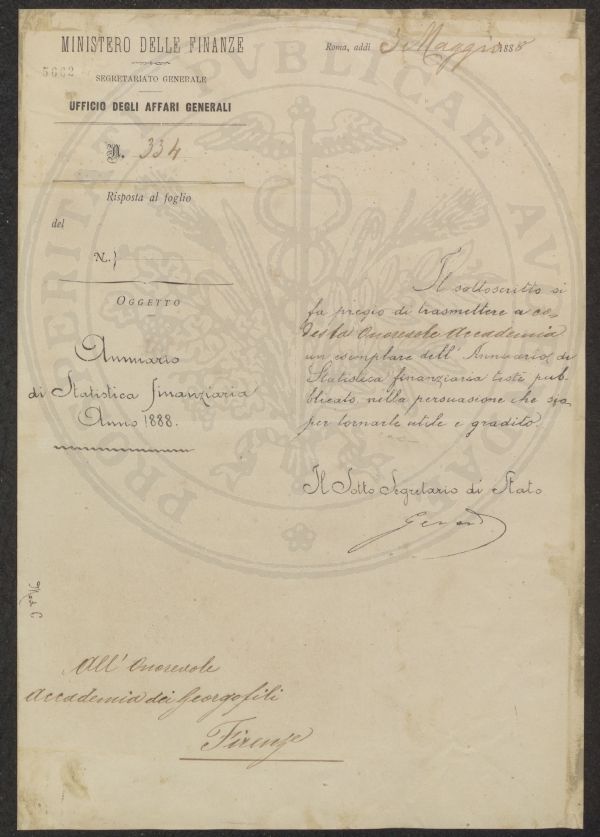 MINISTERO DELLE FINANZE
5662
SEGRETARIATO GENERALE
UFFICIO DEGLI AFFARI GENERALI
N. 334
Risposta al foglio
del
N.
OGGETTO
Annuario
di Statistica finanziaria
Anno 1888.
Roma, addì 5 Maggio 1888
Il sottoscritto si
fa pregio di trasmettere a co-
desta Onorevole Accademia
un esemplare dell' Annuario di
Statistica finanziaria testè pub-
blicato nella persuasione che sia
per tornarle utile e gradito.
Il Sotto Segretario di Stato
All' Onorevole
Accademia dei Georgofili
Firenze
PROSPERITATI PUBLICAE AV